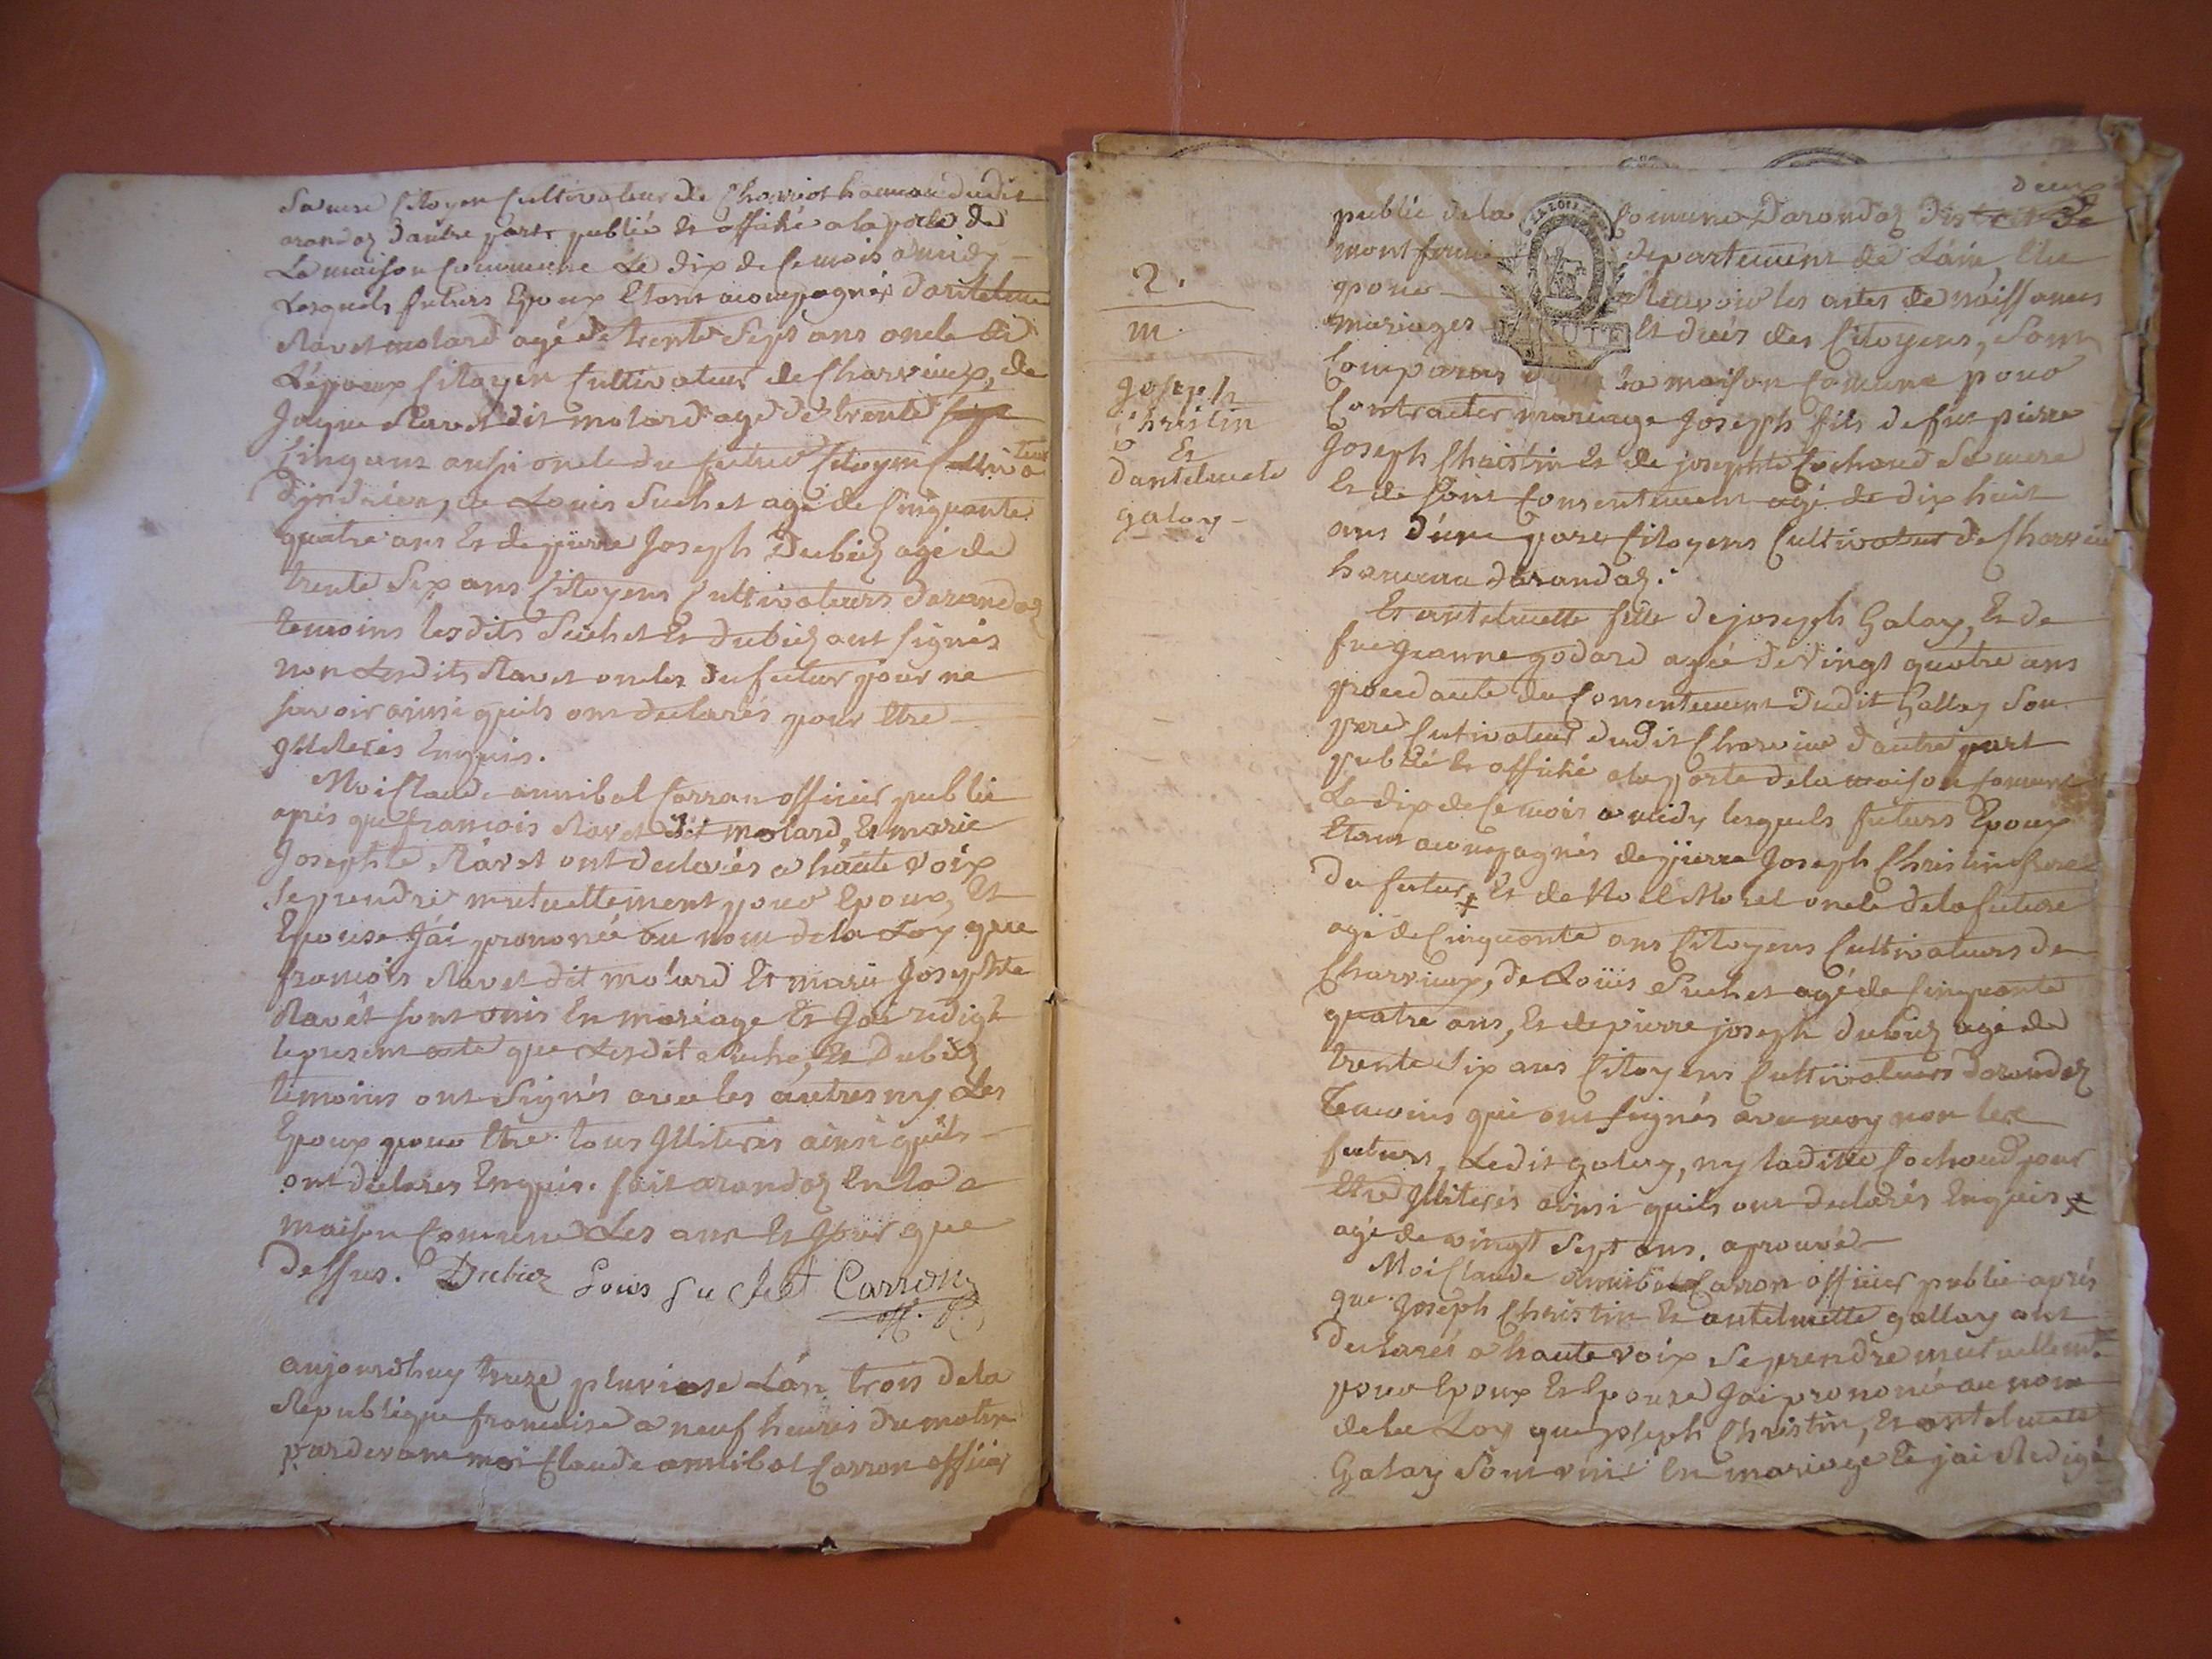 Sa mere Citoyen Cultivateur de Charviot hameau dudit
arandaz d'autre part publié et affiché a la porte de
La maison Commune Le dix de Ce mois a midy
Lesquels futurs Epoux Etant acompagnés d'antelme
Ravet molard agé de trente Sept ans oncle de
L'epoux Citoyen Cultivateur de Charvieux, de
Ravet dit molard agé de trente
Cinq ans aussi oncle du futur Citoyen Cultivateur
de Louis Suchet agé de Cinquante
quatre ans Et de pierre Joseph Dubiez agé de
trente Six ans Citoyens Cultivateurs darandaz
temoins lesdits Suchet Et Dubiez ont signés
non Lesdits Ravet oncles du futur pour ne
savoir ainsi quils ont declarés pour Etre
Illiterés Enquis.
Moi Claude annibal Carron officier public
aprés que francois Ravet dit molard, Et marie
Josephte Ravet ont declarés a haute voix
Se prendre mutuellement pour Epoux, Et
Epouse J'ai prononcé au nom de la Loy que
francois Ravet dit molard Et marie Josephte
Ravet sont unis En mariage Et J'ai redigé
le present acte que Lesdit Suchet, Et Dubiez
temoins ont Signés avec les autres ny Les
Epoux pour Etre tous Illiterés ainsi quils
ont declarés Enquis. fait arandaz En la
maison Commune Les ans Et Jour que
Dessus. Dubiez Louis Suchet Carron
off. P.
aujourdhuy treize pluviose L'an trois de la
Republique francaise a neuf heures du matin
pardevant moi Claude annibal Carron officier
deux
public de la Comune Darandaz District de
montferme departement de L'ain, Elu
pour Recevoir les actes de naissances
mariages Et decés des Citoyens, Sont
Comparus dans la maison Comune pour
Contracter mariage Joseph fils de feu pierre
Joseph Christin Et de josephte Cochoud Sa mere
Et de Son Consentement agé de dix huit
ans d'une part Citoyens Cultivateur de Charvieu
hameau darandaz.
Et antelmette fille de joseph Galay, Et de
feue Jeanne godard agée de Vingt quatre ans
procedante du Consentement Dudit Gallay Son
pere Cultivateur dudit Charvieu d'autre part
publié Et affiché a la porte de la maison Comune
Le dix de Ce mois a midy lesquels futurs Epoux
Etant acompagnés de pierre Joseph Christin frere
du futur ⨥ Et de Noel Morel oncle de la future
agé de Cinquante ans Citoyens Cultivateurs de
Charvieux, de Loüis Suchet agé de Cinquante
quatre ans, Et de pierre joseph Dubiez agé de
trente Six ans Citoyens Cultivateurs darandaz
Temoins qui ont signés avec moy non les
futurs, Ledit galay, ny ladite Cochoud pour
Etre Illiterés ainsi quils ont declarés Enquis ⨥
agé de vingt Sept ans. aprouvé
Moi Claude annibal Carron officier public aprés
que Joseph Christin Et antelmette gallay ont
declarés a haute voix Se prendre mutuellemt
pour Epoux Et Epouse J'ai prononcé au nom
de la Loy que joseph Christin, Et antelmette
Galay Sont unis En mariage Et jai Redigé
2.
m
Joseph
Christin
Et
dantelmete
galay
LA LOI